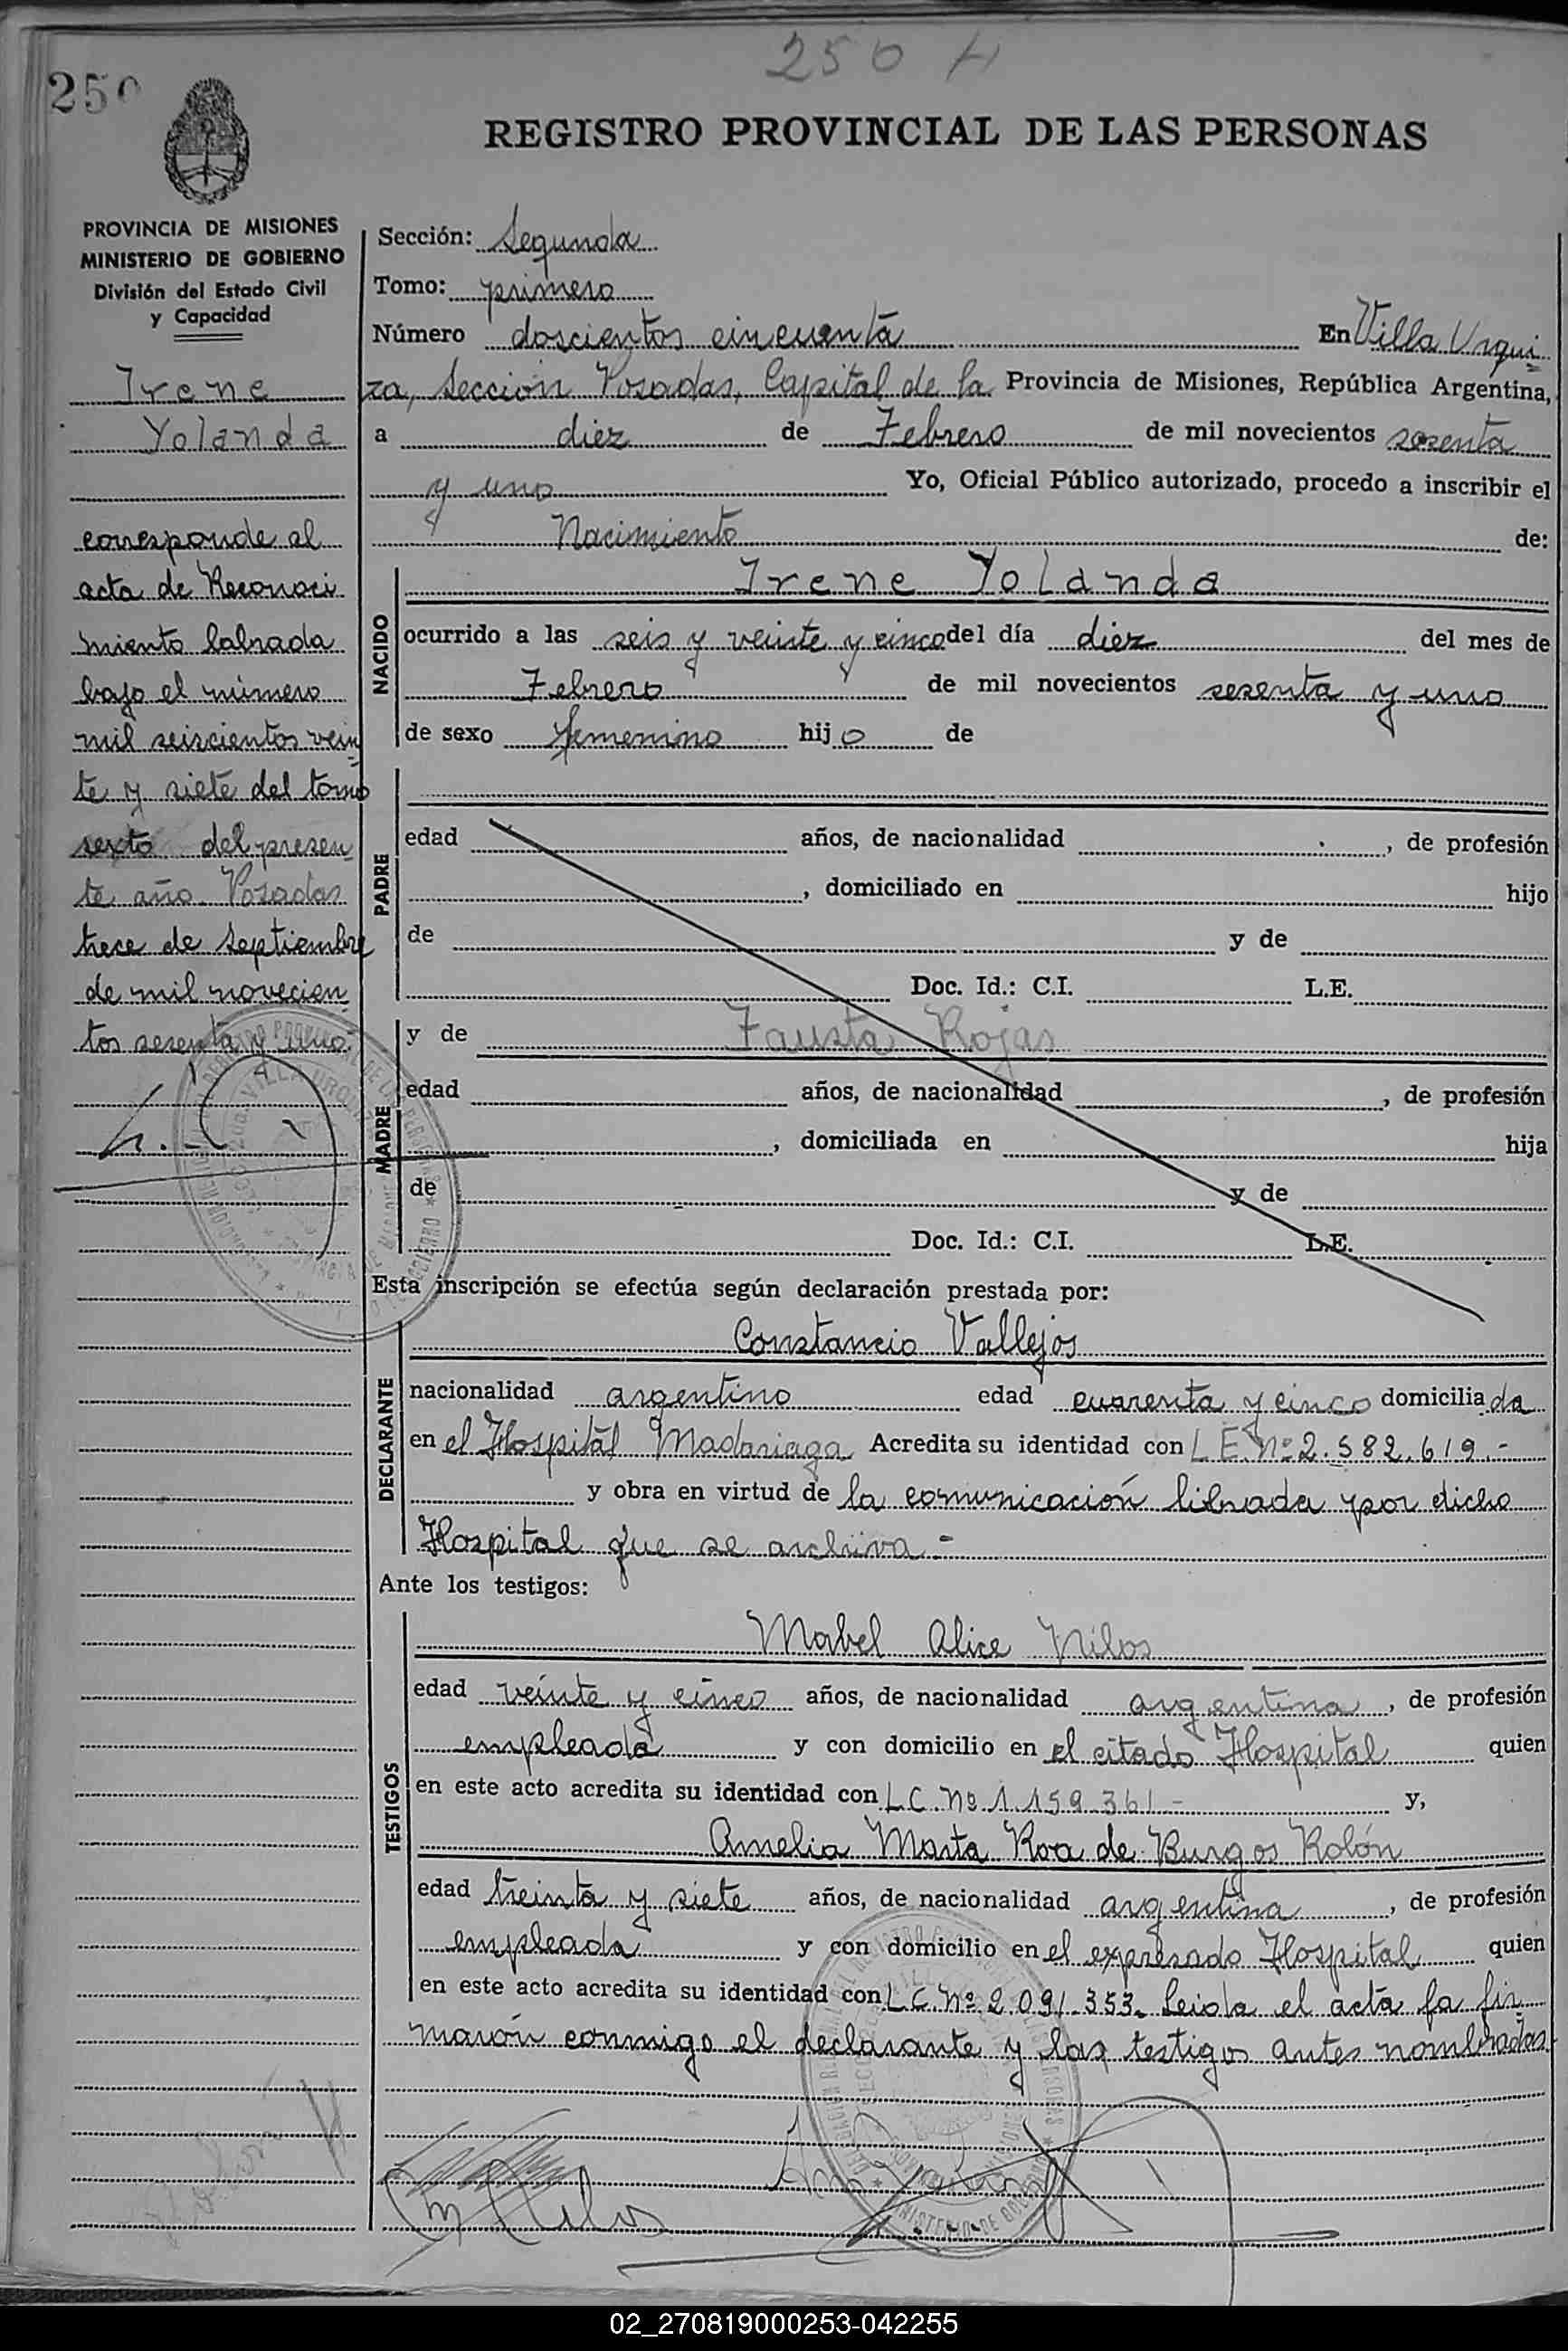 250 H
250
REGISTRO PROVINCIAL DE LAS PERSONAS
PROVINCIA DE MISIONES
MINISTERIO DE GOBIERNO
División del Estado Civil
y Capacidad
Irene
Yolanda
corresponde al
acta de Reconoci
miento labrada
bajo el número
mil seiscientos vein
te y siete del tomo
sexto del presen
te año. Posadas
trece de Septiembre
de mil novecien
tos sesenta y uno.
Sección: Segunda
Tomo: primero
Número doscientos cincuenta En Villa Urqui
za, Sección Posadas, Capital de la Provincia de Misiones, República Argentina,
a diez de Febrero de mil novecientos sesenta
y uno Yo, Oficial Público autorizado, procedo a inscribir el
Nacimiento de:
NACIDO
Irene Yolanda
ocurrido a las seis y veinte y cinco del día diez del mes de
Febrero de mil novecientos sesenta y uno
de sexo femenino hijo de
PADRE
edad años, de nacionalidad , de profesión
, domiciliado en hijo
de y de
Doc. Id.: C.I. L.E.
MADRE
y de Fausta Rojas
edad años, de nacionalidad , de profesión
, domiciliada en hija
de y de
Doc. Id.: C.I. L.E.
Esta inscripción se efectúa según declaración prestada por:
DECLARANTE
Constancio Vallejos
nacionalidad argentino edad cuarenta y cinco domiciliada
en el Hospital Madariaga Acredita su identidad con L E. Nº 2.582.619.-
y obra en virtud de la comunicación librada por dicho
Hospital que se archiva.-
Ante los testigos:
TESTIGOS
Mabel Alice Nilos
edad veinte y cinco años, de nacionalidad argentina, de profesión
empleada y con domicilio en el citado Hospital quien
en este acto acredita su identidad con L.C. Nº 1.159.361- y,
Amelia Marta Roa de Burgos Rolón
edad treinta y siete años, de nacionalidad argentina, de profesión
empleada y con domicilio en el expresado Hospital quien
en este acto acredita su identidad con L.C. Nº 2.091.353. Leida el acta la fir
maron conmigo el declarante y las testigos antes nombradas
02_270819000253-042255